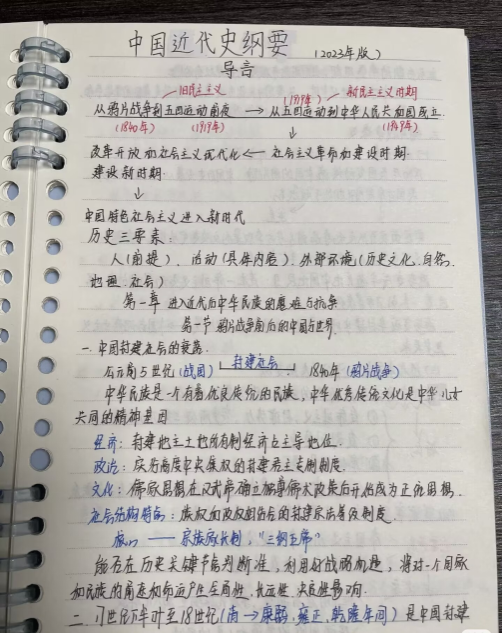 中国近代史纲要 (2023年版)
导言
旧民主主义 (1919年) 新民主主义时期
从鸦片战争到五四运动前夜 → 从五四运动到中华人民共和国成立.
(1840年) (1919年) (1949年)
改革开放和社会主义现代化 ← 社会主义革命和建设时期
建设新时期.
中国特色社会主义进入新时代
历史三要素:
人(前提)、活动(具体内容)、外部环境(历史文化、自然、
地理、社会)
第一章 进入近代后中华民族的磨难与抗争
第一节 鸦片战争前后的中国与世界.
一. 中国封建社会的衰落.
公元前5世纪(战国) 封建社会 1840年(鸦片战争)
中华民族是一个有着优良传统的民族, 中华优秀传统文化是中华儿女
共同的精神基因
经济: 封建地主土地所有制经济占主导地位.
政治: 实行高度中央集权的封建君主专制制度.
文化: 儒家思想在汉武帝确立独尊儒术政策后开始成为正统思想.
社会结构特点: 族权和政权相结合的封建宗法等级制度.
核心 —— 宗族家长制, "三纲五常"
能否在历史关键节点判断准, 利用好战略机遇, 将对一个国家
和民族的前途和命运产生全局性、长远性、决定性影响.
二. 17世纪下半叶至18世纪(清→康熙、雍正、乾隆年间)是中国封建